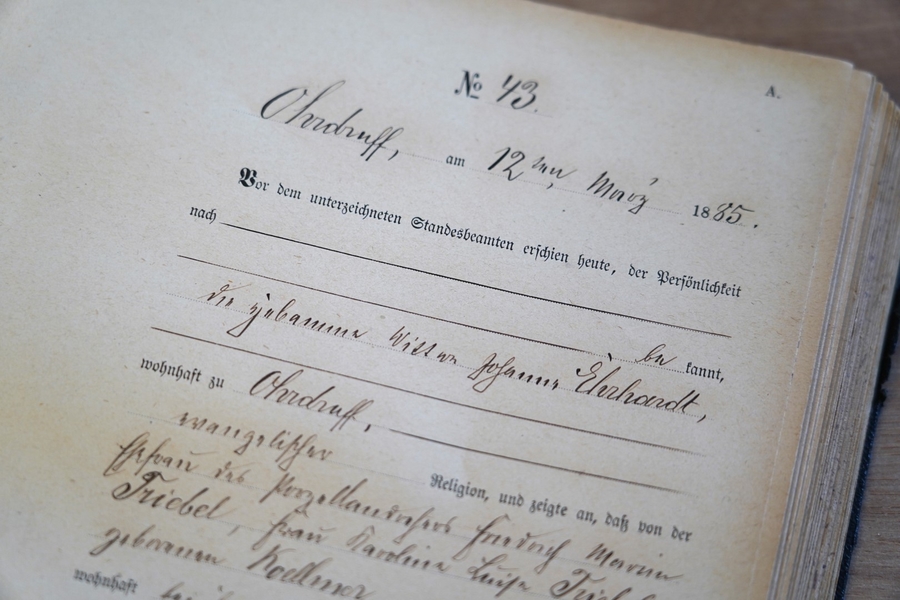 № 43.
A.
Ohrdruff, am 12ten März 1885.
Vor dem unterzeichneten Standesbeamten erschien heute, der Persönlichkeit
nach
be kannt,
die Hebamme Wittwe Johanne Ehrhardt,
wohnhaft zu Ohrdruff,
evangelischer Religion, und zeigte an, daß von der
Ehefrau des Porzellandrehers Friedrich
Triebel, Frau Karoline Luise
geborenen
wohnhaft